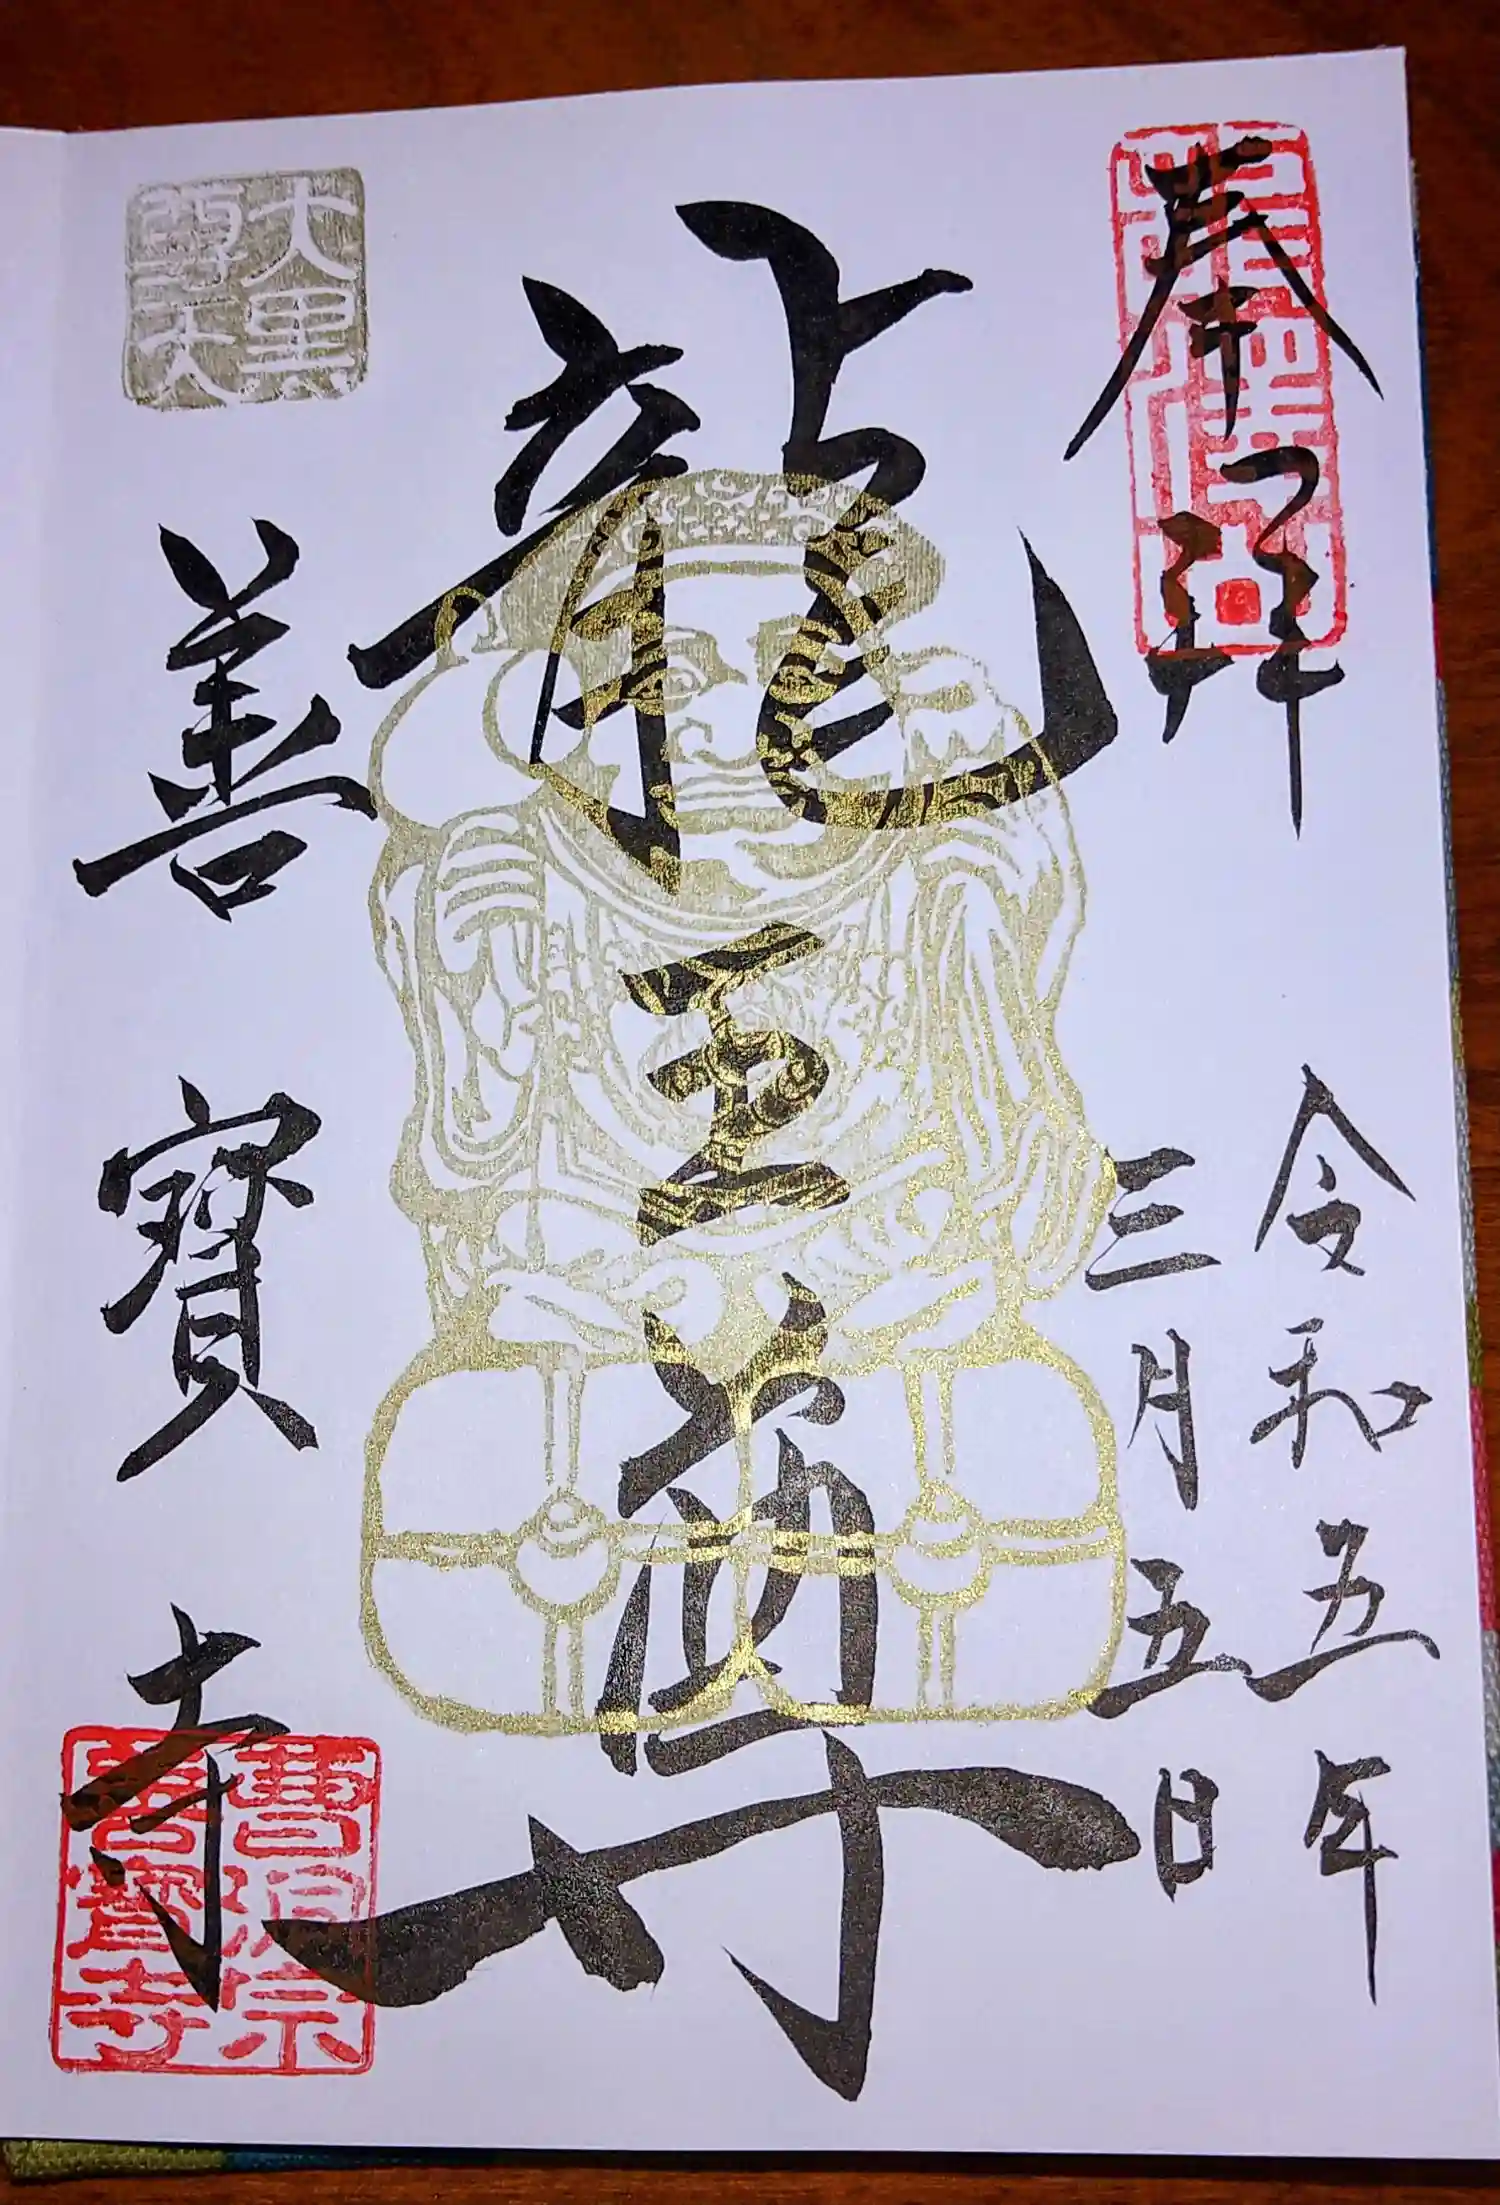 奉拝
令和五年
三月五日
龍王尊
大黒
尊天
善寶寺
曹洞宗
善寶寺